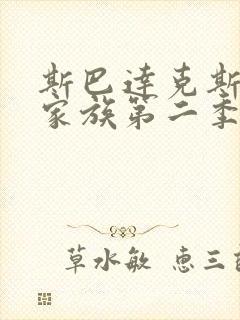 斯巴達克斯
家族第二季
草水敏 惠三